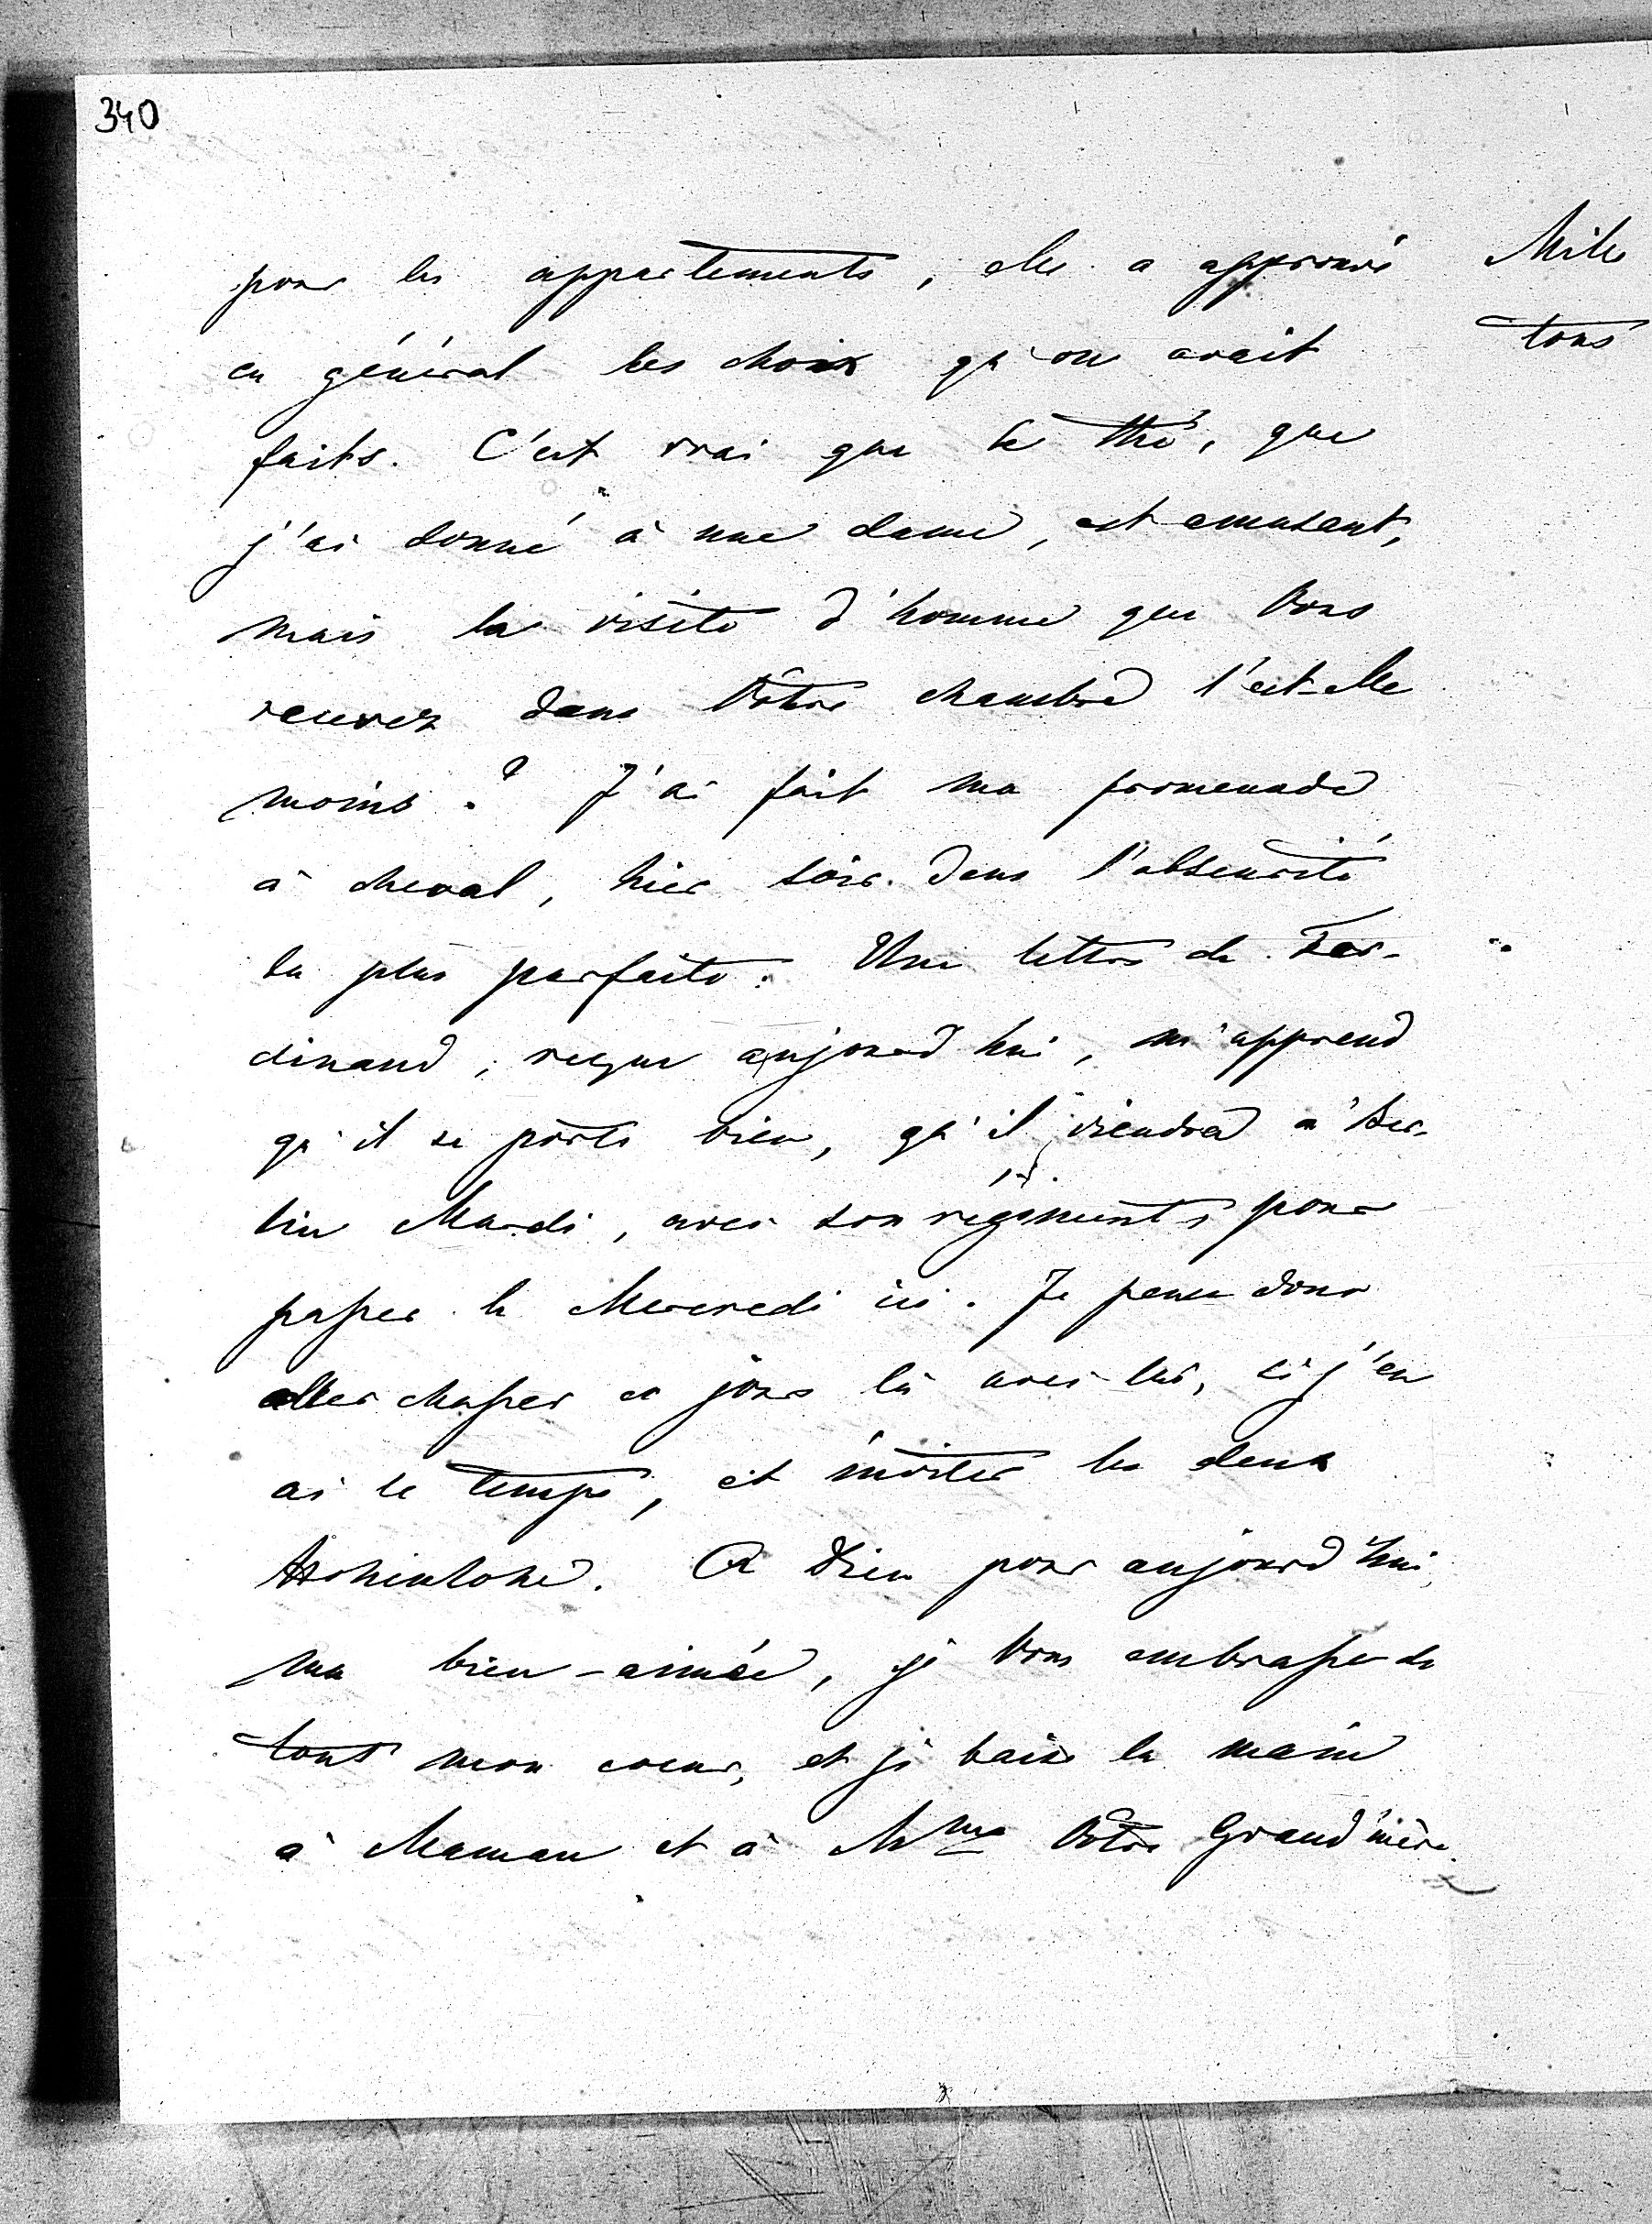 340
pour les appartements, elle a approuvé
en général les choix qu'on avait
faits. C'est vrai que le thé, que
j'ai donné à une dame, est amusant,
mais la visite d'homme que Vous
recevez dans Vôtre chambre l'est-elle
moins? J'ai fait ma promenade
à cheval, hier soir dans l'obscurité
la plus parfaite. Une lettre de Fer-
dinand, reçue aujourd'hui, m'apprend
qu'il se porte bien, qu'il viendra à Ber-
lin Mardi, avec son régiment, pour
passer le Mercredi ici. Je pense donc
aller chasser ce jour là avec lui, si j'en
ai le temps, et inviter les deux
Hohenlohe. A Dieu pour aujourd'hui,
ma bien-aimée, je Vous embrasse de
tout mon coeur, et je baise la main
à Maman et à Mme Vôtre Grand'mère.
Mille
tous